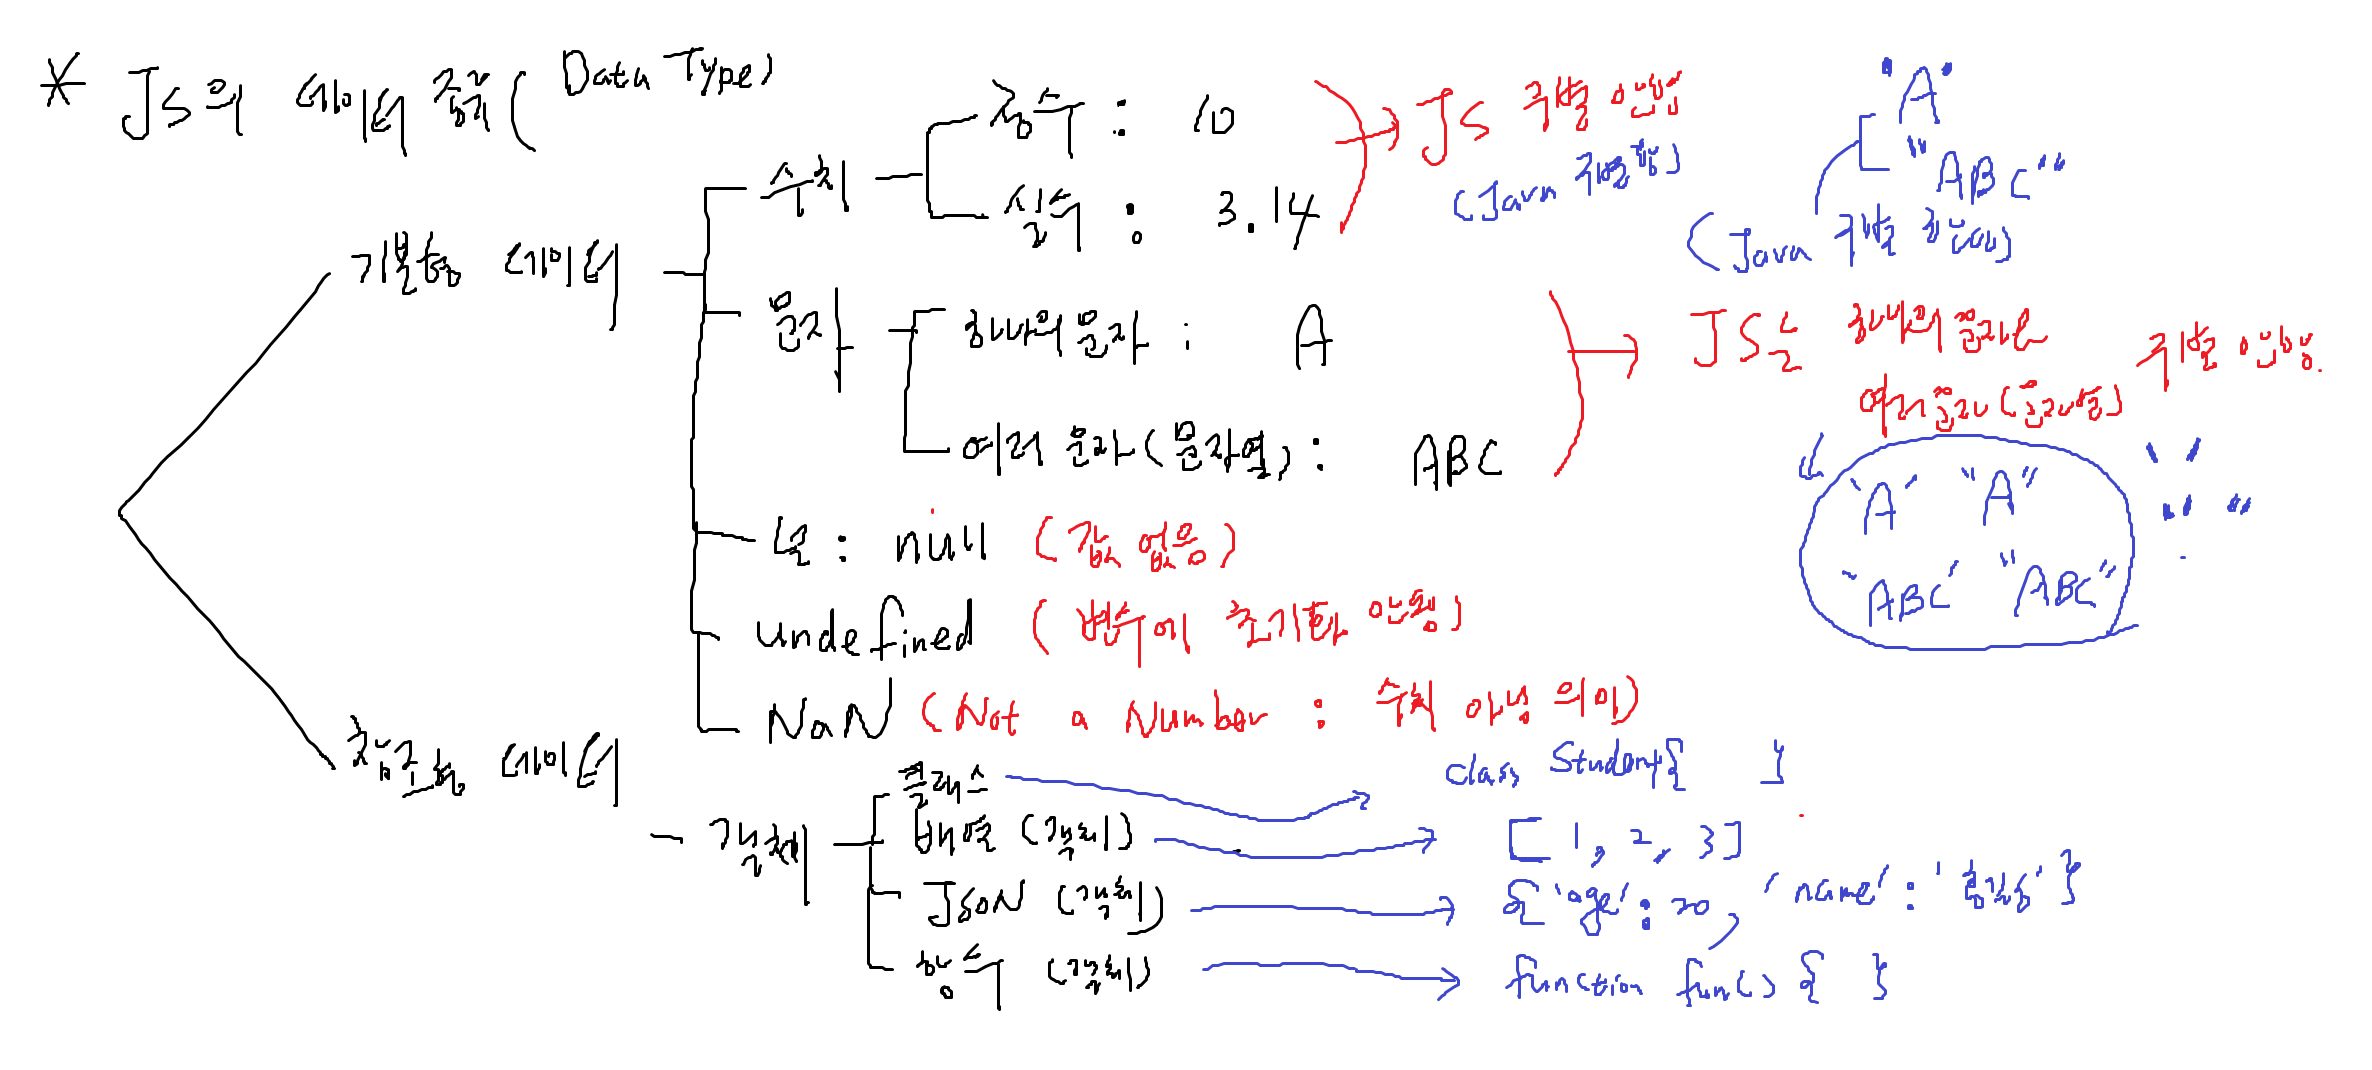 * JS의 데이터 종류 (Data Type)
기본형 데이터
수치
정수 : 10
실수 : 3.14
JS 구별 안함
(Java 구별함)
'A'
"ABC"
(Java 구별 했어)
문자
하나의 문자 : A
여러 문자(문자열) : ABC
JS는 하나의 문자나
여러 문자(문자열) 구별 안함.
' '
" "
'A' "A"
'ABC' "ABC"
널 : null (값 없음)
undefined (변수에 초기화 안됨)
NaN (Not a Number : 수치 아님 의미)
참조형 데이터
객체
클래스
class Student{ }
배열 (객체)
[1, 2, 3]
JSON (객체)
{'age':20, 'name':'홍길동'}
함수 (객체)
function fun() { }